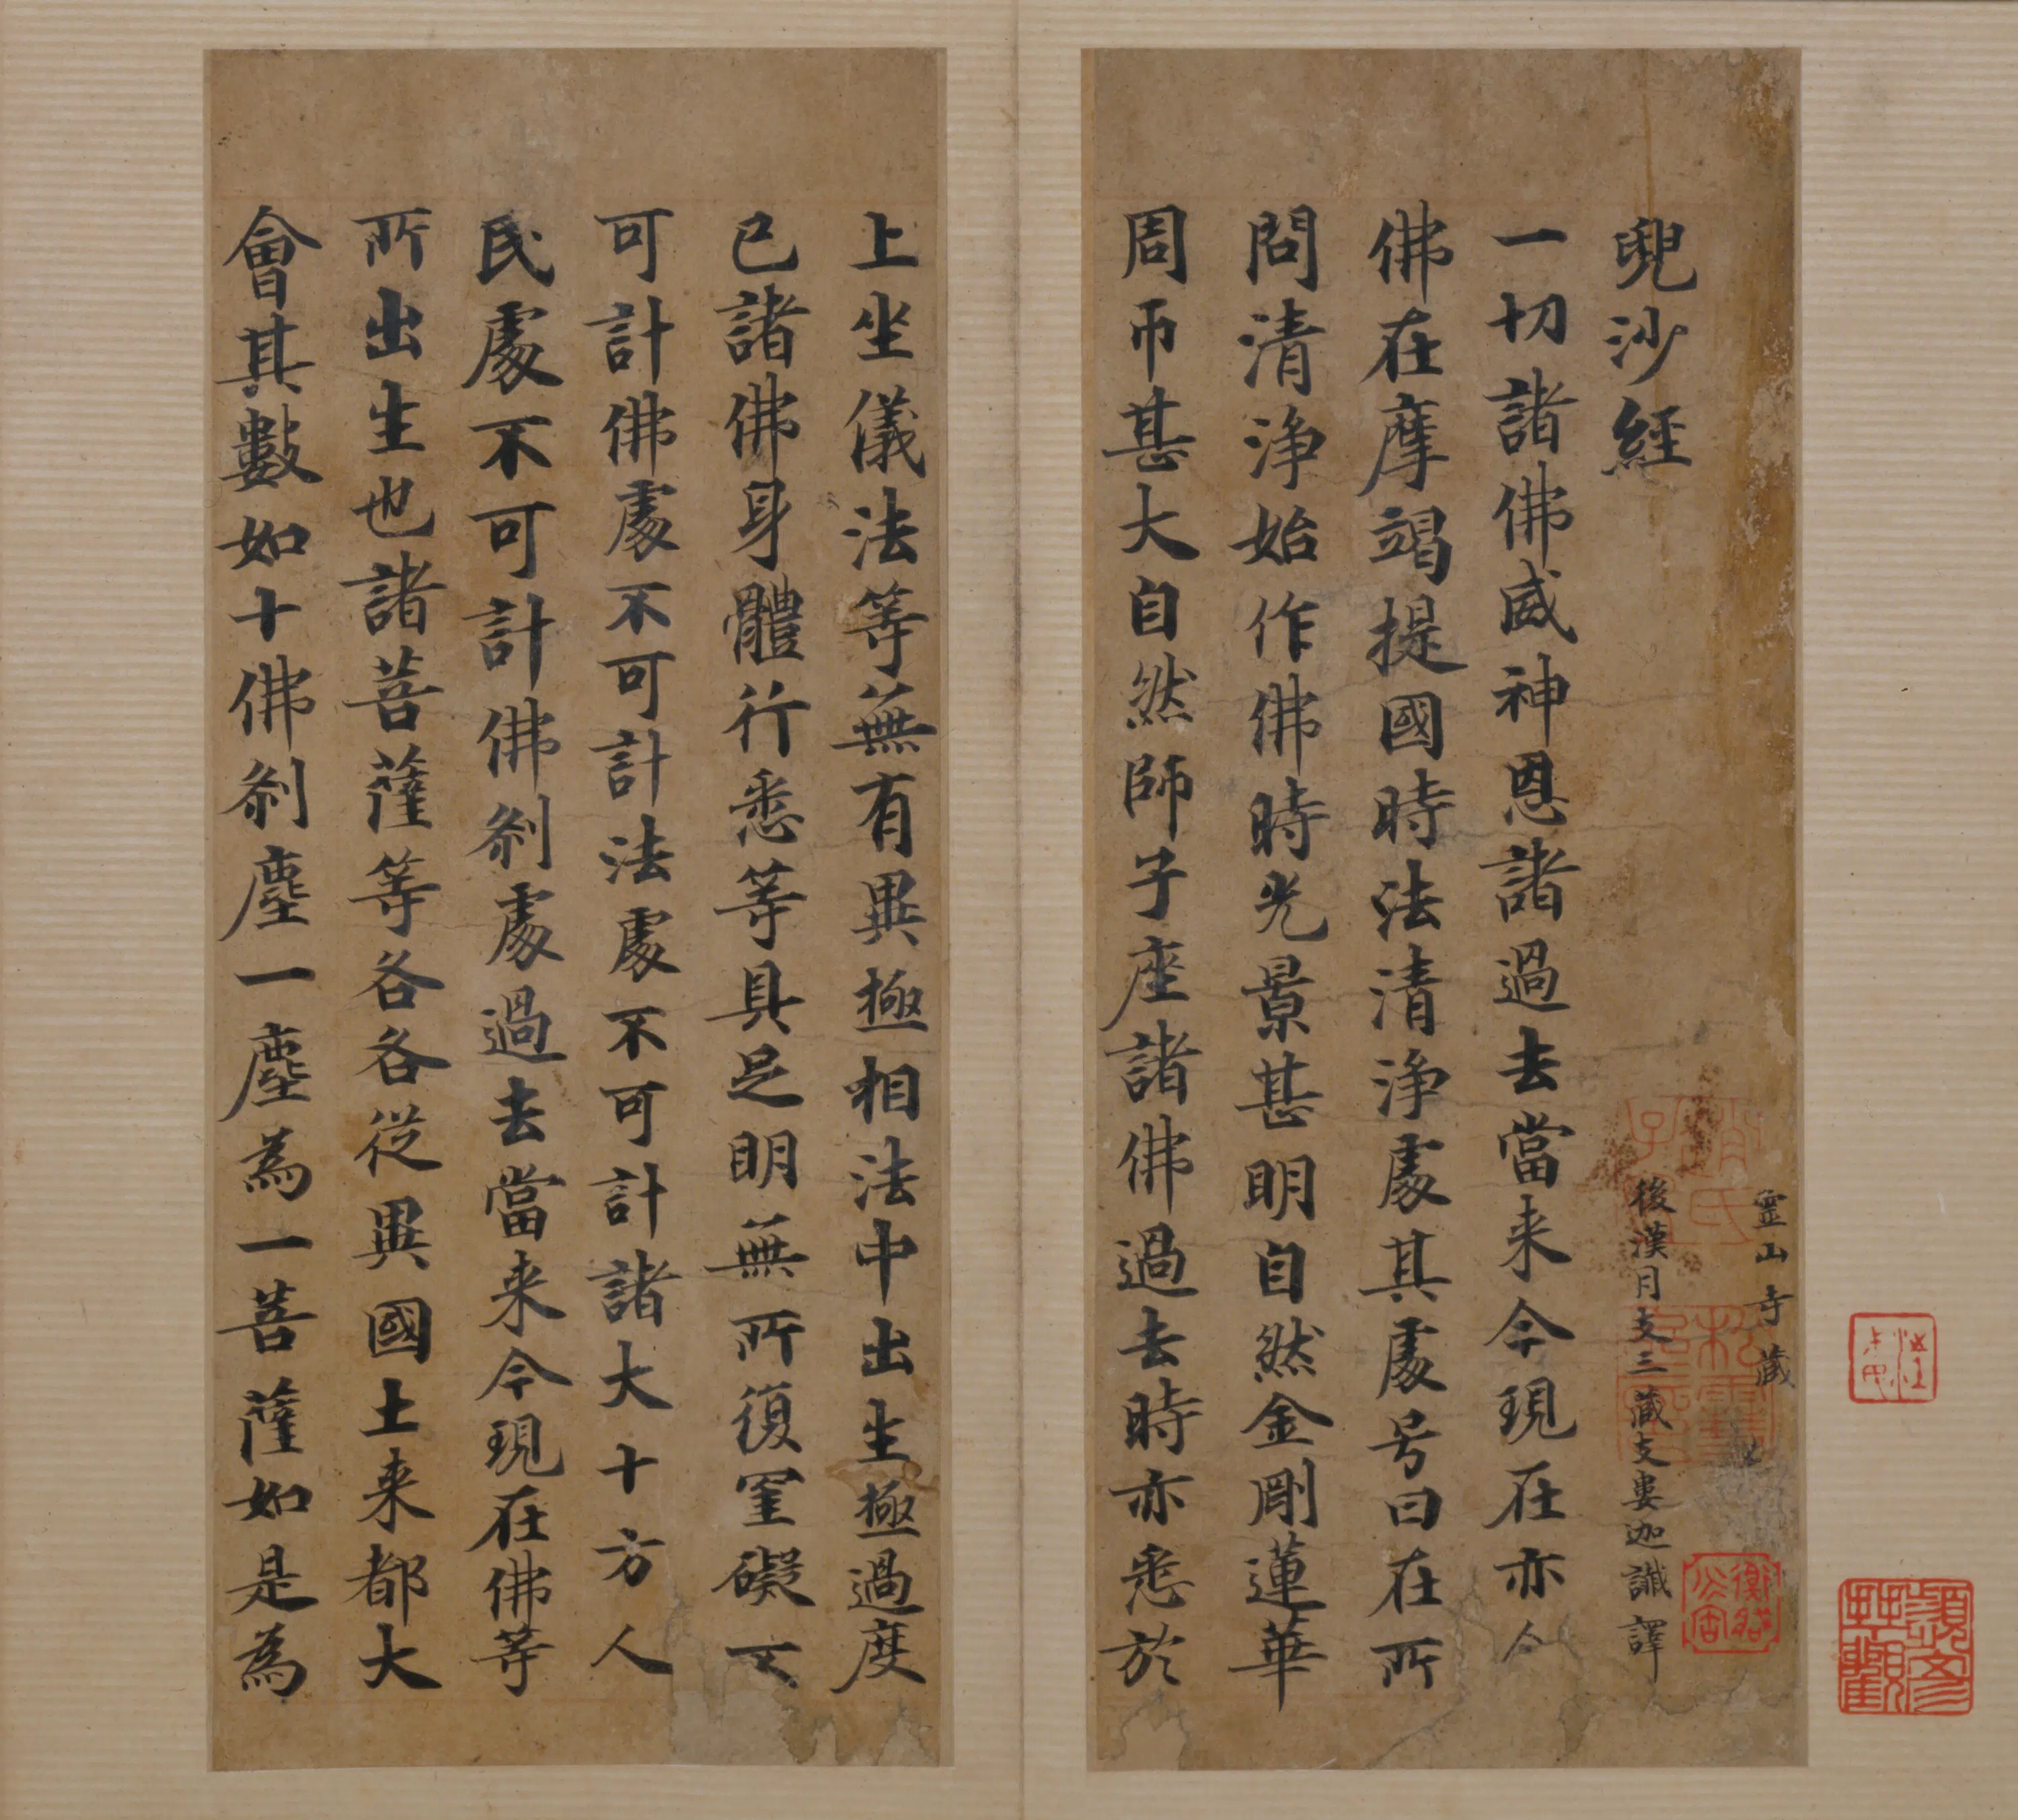 靈山寺藏
兜沙經
後漢月支三藏支婁迦讖譯
一切諸佛威神恩諸過去當来今現在亦介
佛在摩竭提國時法清淨處其處号曰在所
問清淨始作佛時光景甚明自然金剛蓮華
周帀甚大自然師子座諸佛過去時亦悉於
上坐儀法等無有異極相法中出生極過度
已諸佛身體行悉等具足明無所復罣礙不
可計佛處不可計法處不可計諸大十方人
民處不可計佛剎處過去當来今現在佛等
所出生也諸菩薩等各各從異國土来都大
會其數如十佛剎塵一塵為一菩薩如是為